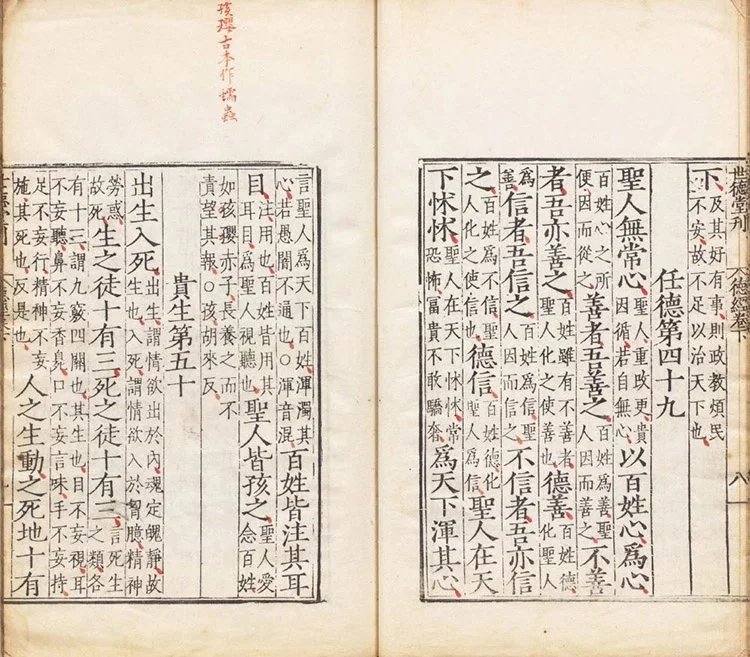 世德堂刊
德經卷下
八
下及其好有事則政教煩民不安故不足以治天下也
任德第四十九
聖人無常心聖人重改更貴因循若自無心以百姓心爲心
百姓心之所便因而從之善者吾善之百姓爲善聖人因而善之不善
者吾亦善之百姓雖有不善者聖人化之使善也德善百姓德化聖人
爲善信者吾信之百姓爲信聖人因而信之不信者吾亦信
之百姓爲不信聖人化之使信也德信百姓德化聖人爲信聖人在天
下怵怵聖人在天下怵怵常恐怖富貴不敢驕奢爲天下渾其心
孩瓔古本作蠕蟲
言聖人爲天下百姓渾濁其心若愚闇不通也○渾音混百姓皆注其耳
目注用也百姓皆用其耳目爲聖人視聽也聖人皆孩之聖人愛念百姓
如孩瓔赤子長養之而不責望其報○孩胡來反
貴生第五十
出生入死出生謂情欲出於内魂定魄靜故生也入死謂情欲入於胷臆精神
勞惑故死生之徒十有三死之徒十有三言死生之類各
有十三謂九竅四關也其生也目不妄視耳不妄聽鼻不妄香臭口不妄言味手不妄持
足不妄行精神不妄施其死也反是也人之生動之死地十有